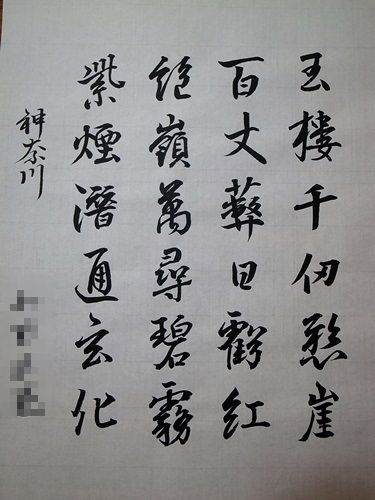 玉楼千仞懸崖
百丈日虧紅
絶嶺萬尋碧霧
紫煙潛通玄化
神奈川